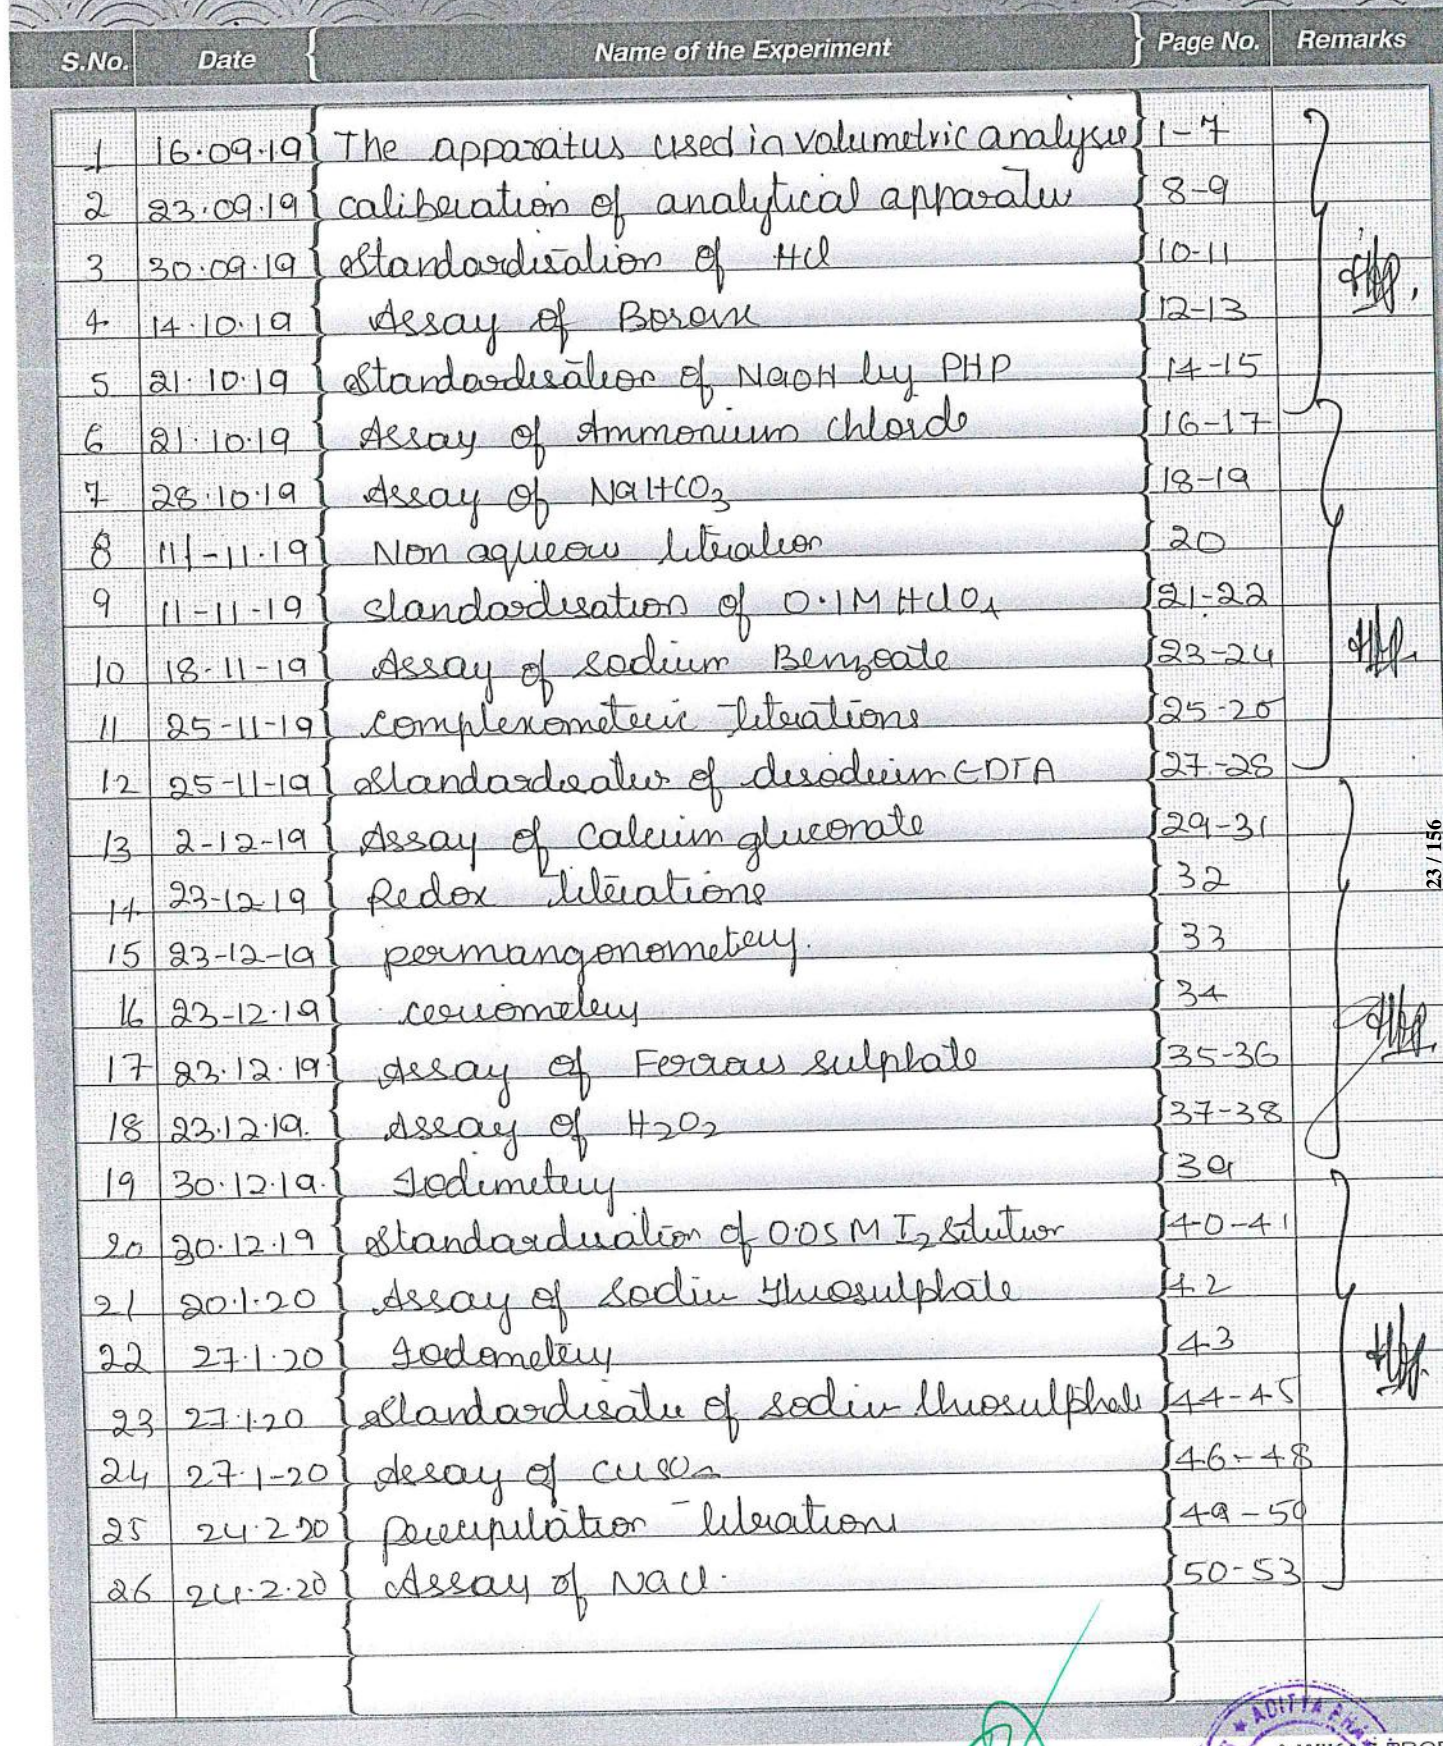 S.No. Date Name of the Experiment Page No. Remarks
1 16.09.19 The apparatus used in volumetric analysis 1-7
2 23.09.19 caliberation of analytical apparatus 8-9
3 30.09.19 Standardisation of HCl 10-11
4. 14.10.19 Assay of Borax 12-13
5 21.10.19 Standardisation of NaOH by PHP 14-15
6 21.10.19 Assay of Ammonium chloride 16-17
7 28.10.19 Assay of NaHCO3 18-19
8 11-11.19 Non aqueous titration 20
9 11-11-19 standardisation of 0.1M HClO4 21-22
10 18-11-19 Assay of sodium Benzoate 23-24
11 25-11-19 complexometric titrations 25-26
12 25-11-19 Standardisation of disodium EDTA 27-28
13 2-12-19 Assay of Calcium gluconate 29-31
14. 23-12-19 Redox titrations 32
15 23-12-19 permangonometry. 33
16 23-12.19 ceriometry 34
17 23.12.19 Assay of Ferrous sulphate 35-36
18 23.12.19. Assay of H2O2 37-38
19 30.12.19. Iodimetry 39
20 30.12.19 Standardisation of 0.05 M I2 solution 40-41
21 20.1.20 Assay of Sodium thiosulphate 42
22 27.1.20 Iodometry 43
23 27.1.20 Standardisation of sodium thiosulphate 44-45
24 27.1-20 Assay of CuSO4 46-48
25 24.2.20 Precipitation titrations 49-50
26 24.2.20 Assay of NaCl. 50-53
23 / 156
★ ADITYA